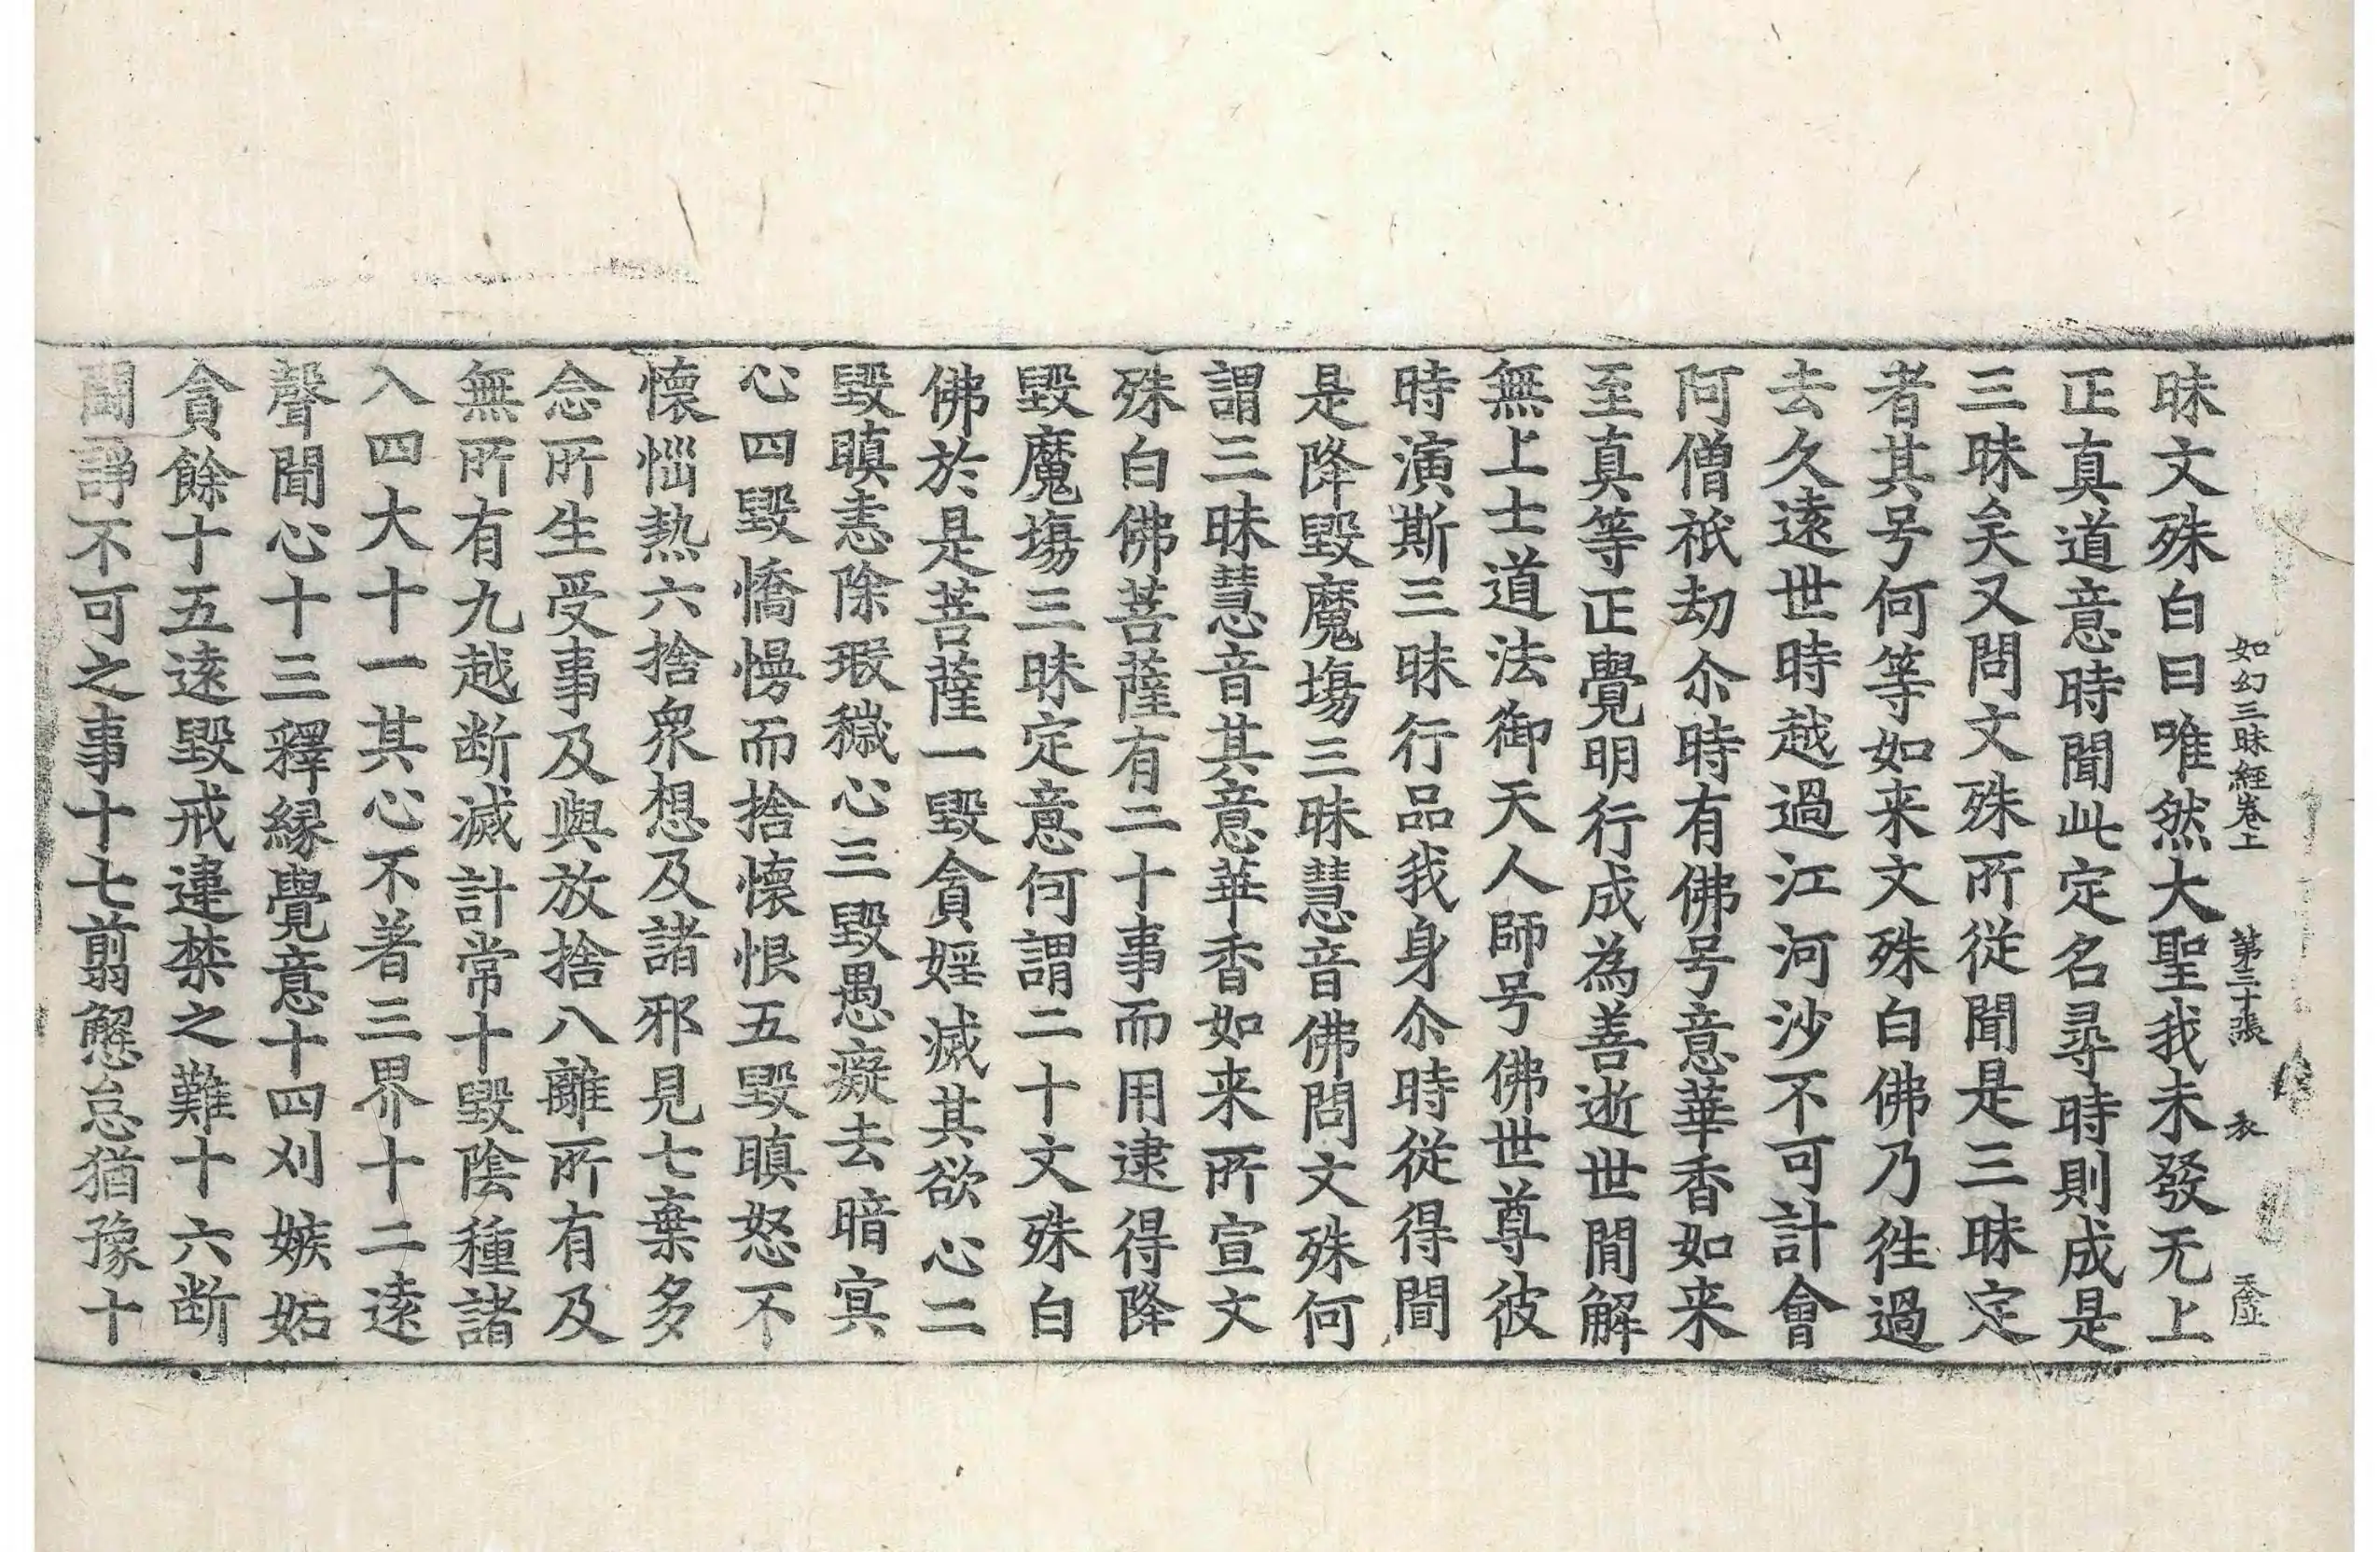 如幻三昧經卷上　第三十張　衣
昧文殊白曰唯然大聖我未發无上
正真道意時聞此定名尋時則成是
三昧矣又問文殊所從聞是三昧定
者其号何等如来文殊白佛乃徃過
去久遠世時越過江河沙不可計會
阿僧祇劫尒時有佛号意華香如来
至真等正覺明行成為善逝世間解
無上士道法御天人師号佛世尊彼
時演斯三昧行品我身尒時從得聞
是降毀魔塲三昧慧音佛問文殊何
謂三昧慧音其意華香如来所宣文
殊白佛菩薩有二十事而用逮得降
毀魔塲三昧定意何謂二十文殊白
佛於是菩薩一毀貪婬滅其欲心二
毀瞋恚除瑕穢心三毀愚癡去暗冥
心四毀憍慢而捨懷恨五毀瞋怒不
懷惱熱六捨衆想及諸邪見七棄多
念所生受事及與放捨八離所有及
無所有九越断滅計常十毀陰種諸
入四大十一其心不著三界十二遠
聲聞心十三釋縁覺意十四刈嫉妬
貪餘十五遠毀戒違禁之難十六断
閙諍不可之事十七翦懈怠猶豫十